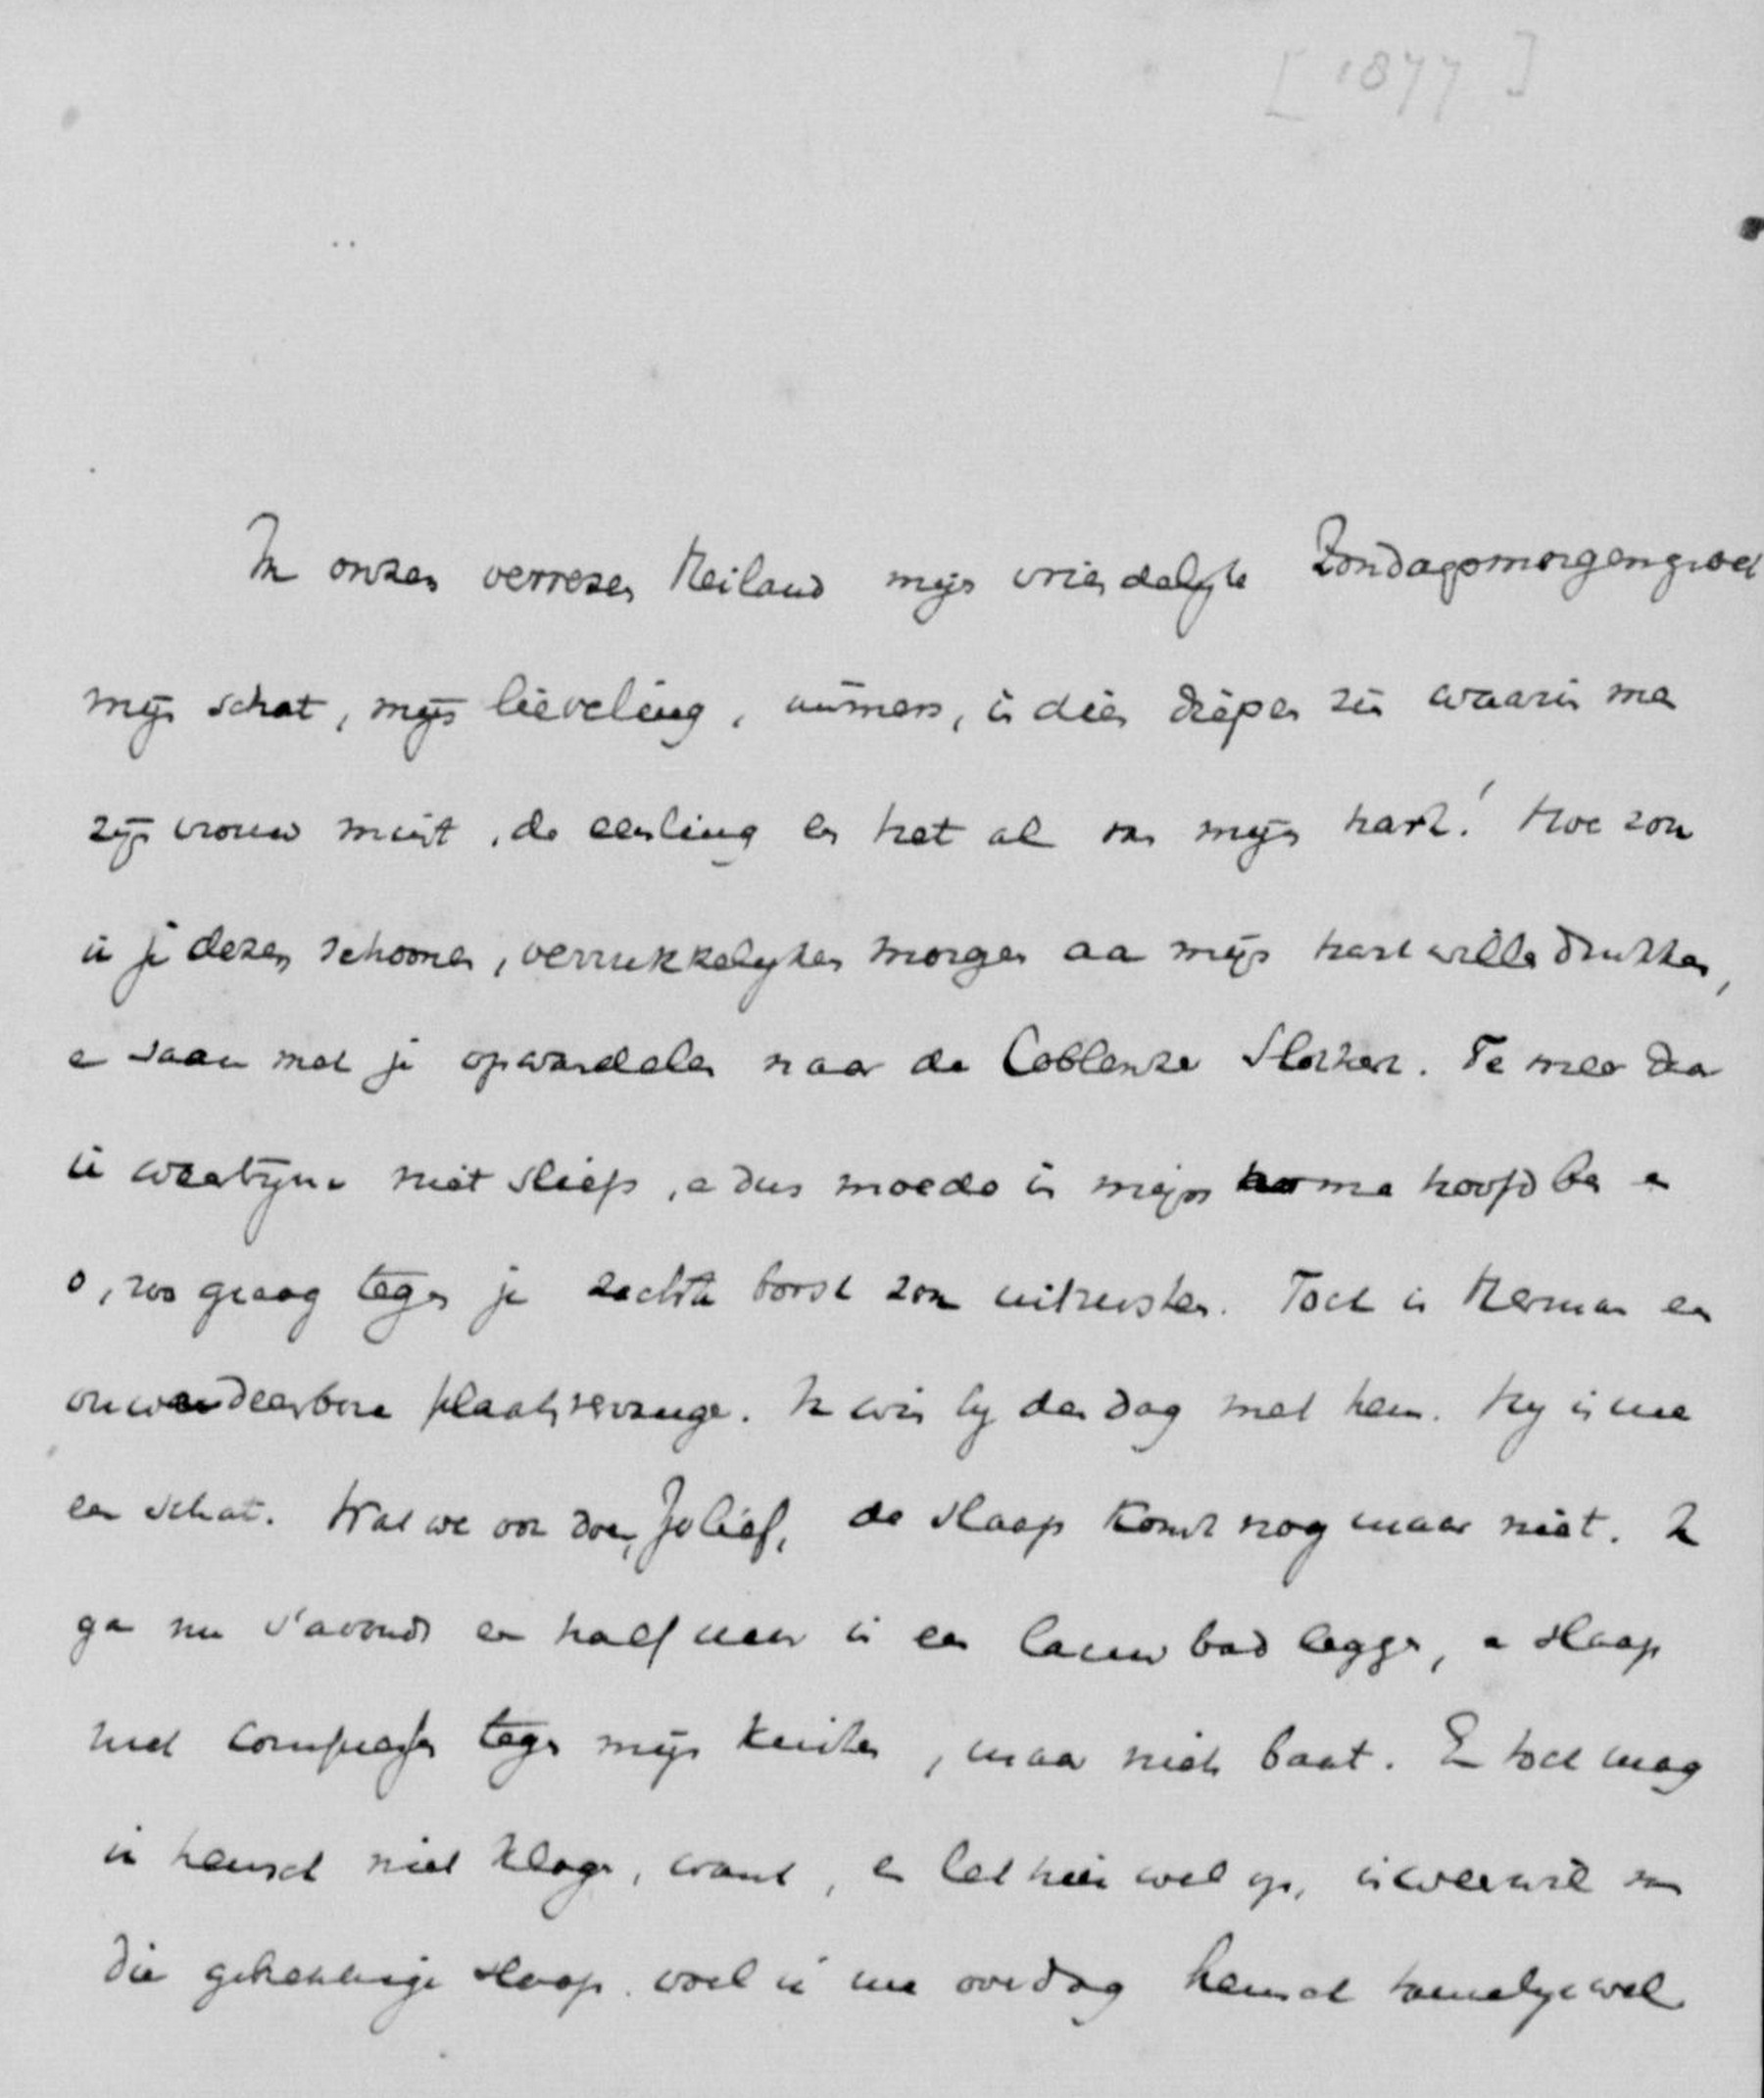 [1877]
In onzen verrezen Heiland mijn vriendelyke Zondagsmorgengroet
mijn schat, mijn lieveling, immers, in dien diepen zin waarin men
zijn vrouw mint, de eenling en het al van mijn hart! Hoe zou
ik je dezen schoonen, verrukkelyken morgen aan mijn hart willen drukken,
en saam met je opwandelen naar de Coblenze Slotkerk. Te meer daar
ik weer niet sliep, en dus moede in mijn arme hoofd ben en
o, zoo graag tegen je zachte borst zou uitrusten. Toch is Herman een
onwaardeerbare plaatsvervanger. Ik win by den dag met hem. Hy is me
een schat. Wat we ook doen, Jolief, de slaap komt nog maar niet. Ik
ga nu s'avonds een half uur in een lauw bad leggen, en slaap
met compressen tegen mijn kuiten, maar niets baat. En toch mag
ik heusch niet klagen, want, en let hier wel op, in weerwil van
die gebrekkige slaap voel ik me overdag heusch tamelyk wel